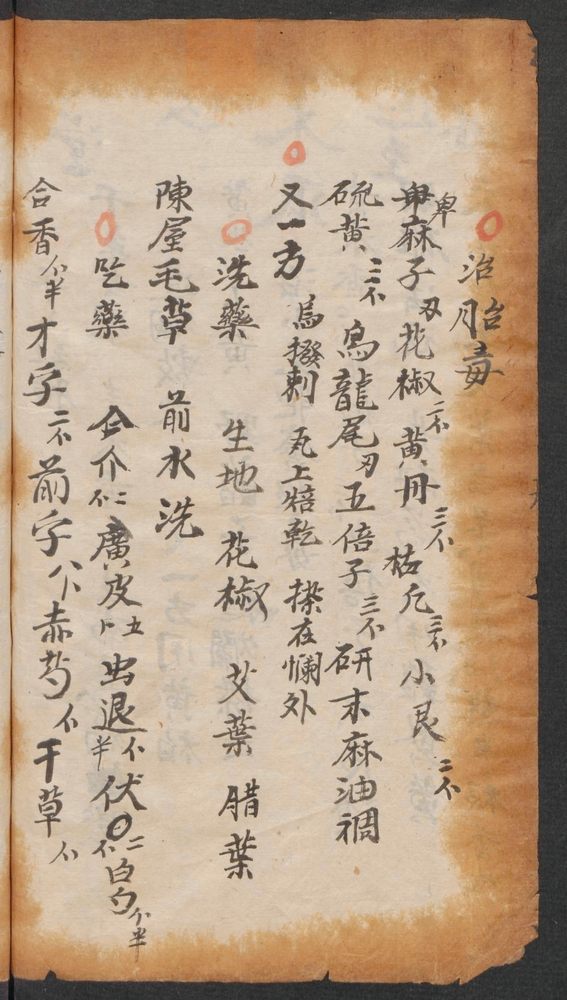 治胎毒
萆麻子刄花椒二不黄丹三不枯凡三不小艮二不
硫黄三不烏龍尾刄五倍子三不研末麻油裯
又一方 烏撥剌 瓦上焙乾 搽在爛外
洗藥 生地 花椒 艾葉 腊葉
陳屋毛草 前水洗
吃藥 仝介二不廣皮五卜虫退不半伏〇二不白勺个半
合香个半才字二不前字八卜赤芍不干草不